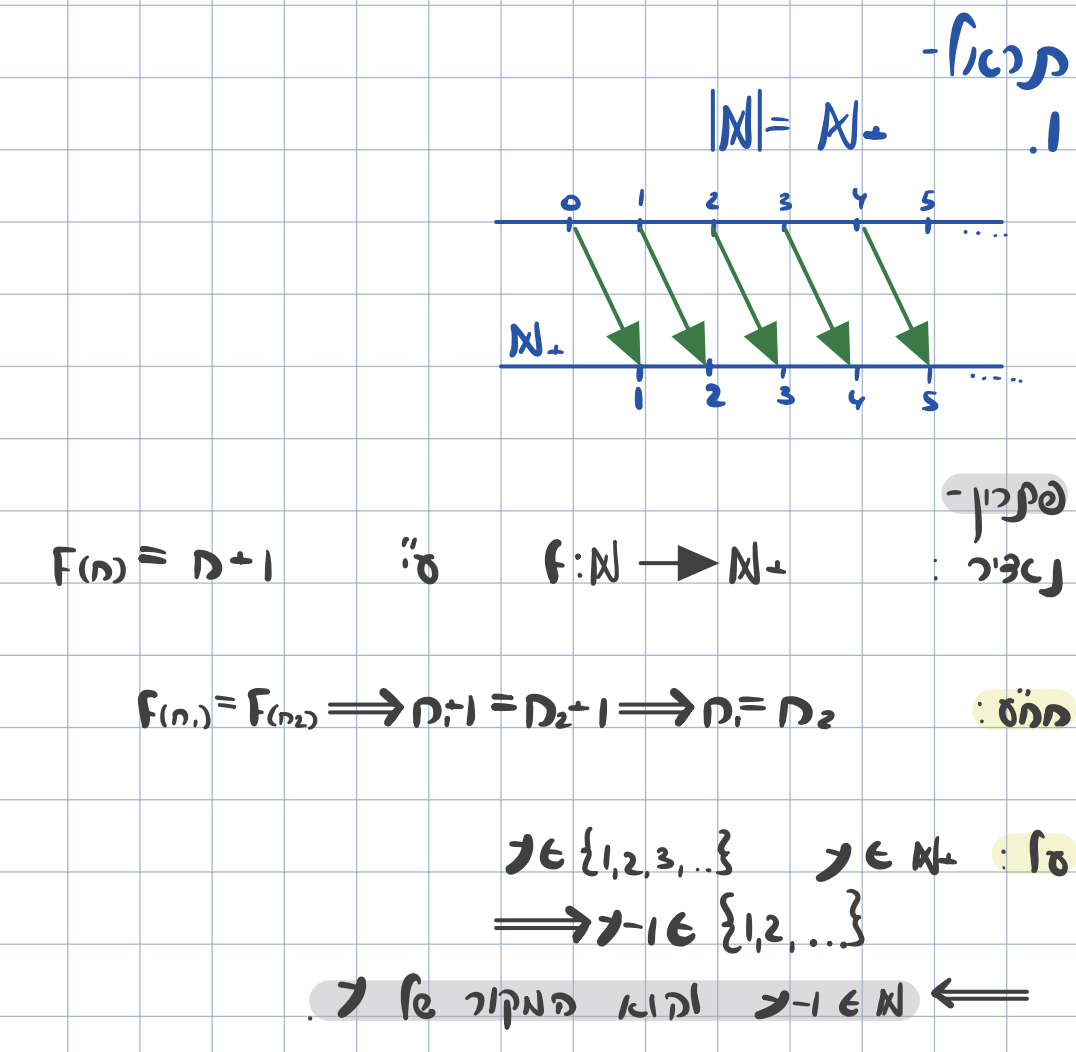 תרגול -
1. |ℕ| = ℕ+
0 1 2 3 4 5 ....
ℕ+
1 2 3 4 5 .....
פתרון -
נגדיר : f:ℕ → ℕ+ ע"י F(n) = n+1
חח"ע : F(n₁) = F(n₂) ⟹ n₁+1 = n₂+1 ⟹ n₁ = n₂
על : y ∈ ℕ+ y ∈ {1,2,3,..}
⟹ y-1 ∈ {1,2,...}
⟸ y-1 ∈ ℕ והוא המקור של y.